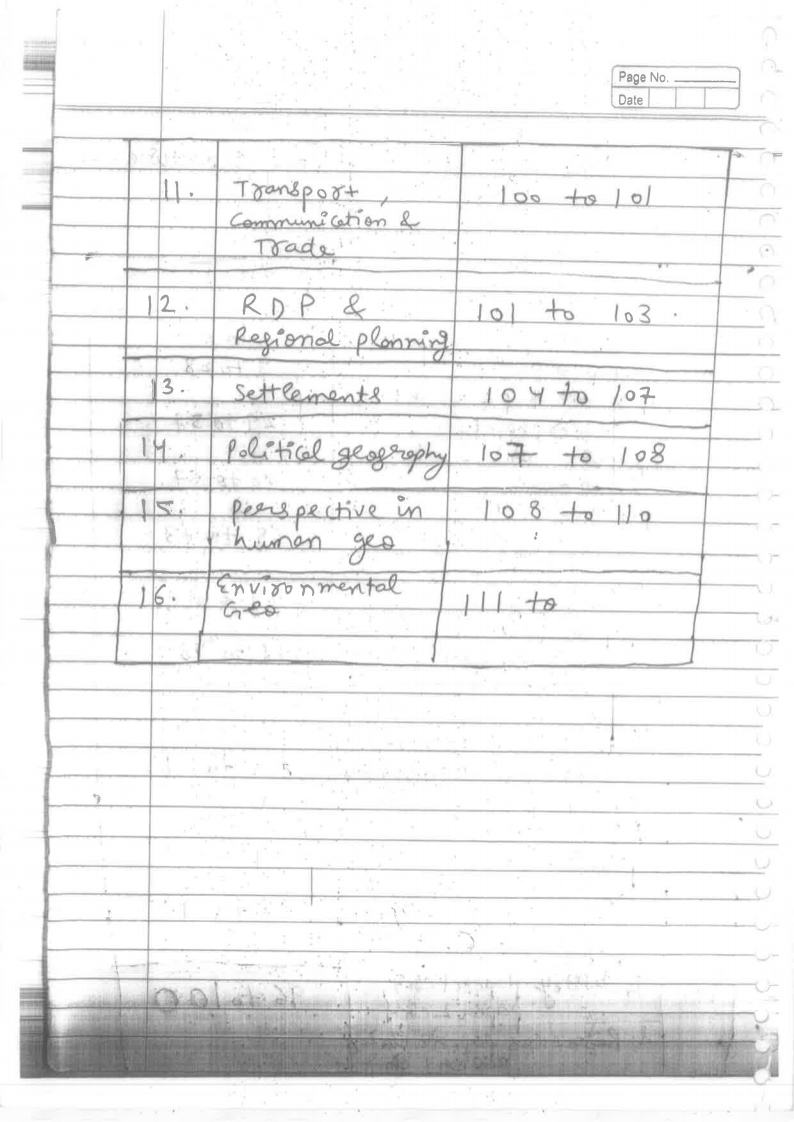 Page No.
Date
11. Transport, 100 to 101
Communication &
Trade
12. RDP & 101 to 103
Regional planning
13. Settlements 104 to 107
14. Political geography 107 to 108
15. Perspective in 108 to 110
human geo
16. Environmental 111 to
Geo